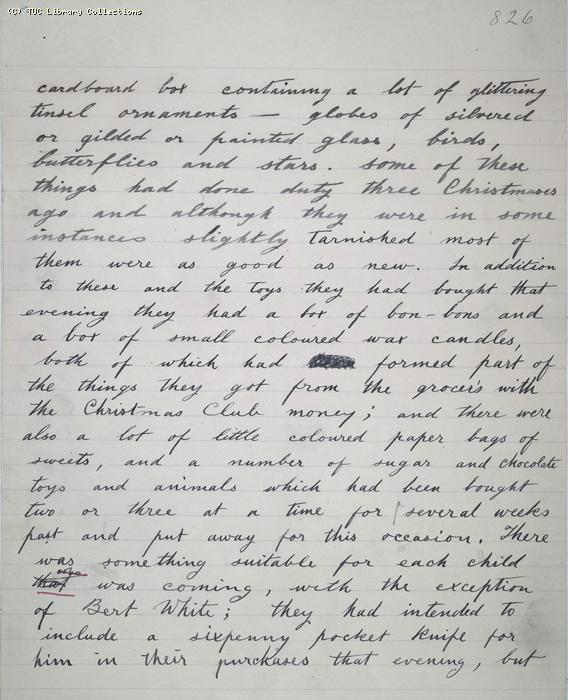 (C) TUC Library Collections
826
cardboard box containing a lot of glittering
tinsel ornaments — globes of silvered
or gilded or painted glass, birds,
butterflies and stars. some of these
things had done duty three Christmases
ago and although they were in some
instances slightly tarnished most of
them were as good as new. In addition
to these and the toys they had bought that
evening they had a box of bon-bons and
a box of small coloured wax candles,
both of which had formed part of
the things they got from the grocer's with
the Christmas Club money; and there were
also a lot of little coloured paper bags of
sweets, and a number of sugar and chocolate
toys and animals which had been bought
two or three at a time for several weeks
past and put away for this occasion. There
was something suitable for each child
that was coming, with the exception
of Bert White; they had intended to
include a sixpenny pocket knife for
him in their purchases that evening, but